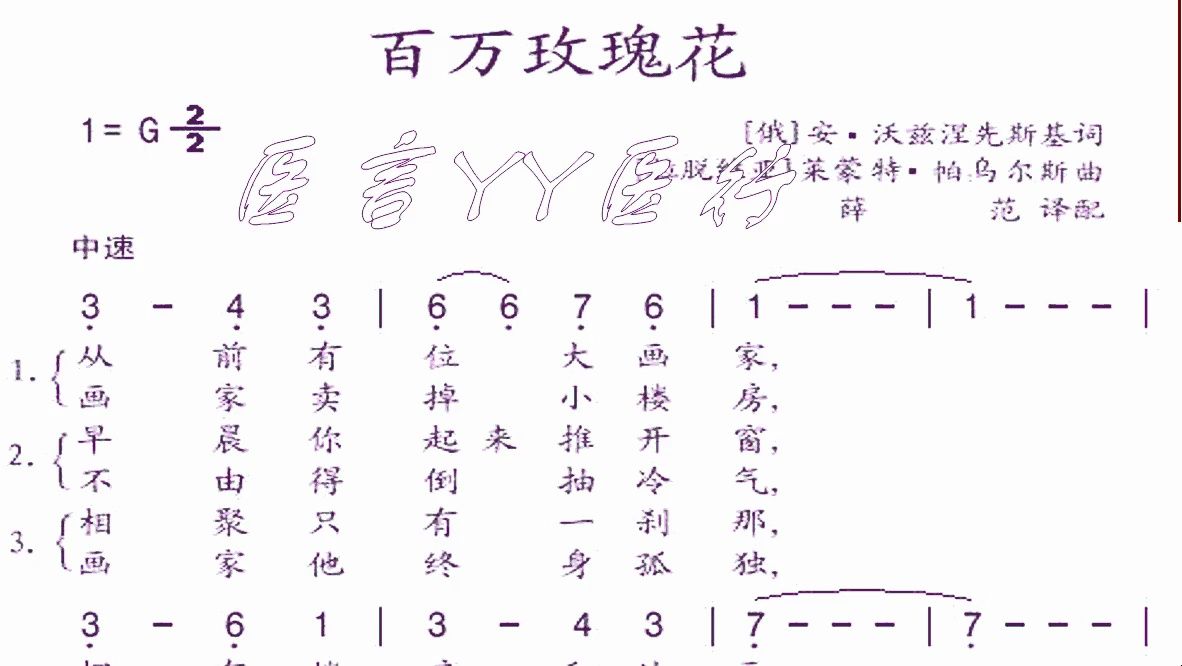 百万玫瑰花
1 = G 2/2
[俄]安·沃兹涅先斯基词
脱 莱蒙特·帕乌尔斯曲
薛 范 译配
医言YY医行
中速
3 - 4 3 | 6 6 7 6 | 1 - - - | 1 - - - |
1. 从 前 有 位 大 画 家,
画 家 卖 掉 小 楼 房,
2. 早 晨 你 起 来 推 开 窗,
不 由 得 倒 抽 冷 气,
3. 相 聚 只 有 一 刹 那,
画 家 他 终 身 孤 独,
3 - 6 1 | 3 - 4 3 | 7 - - - | 7 - - - |